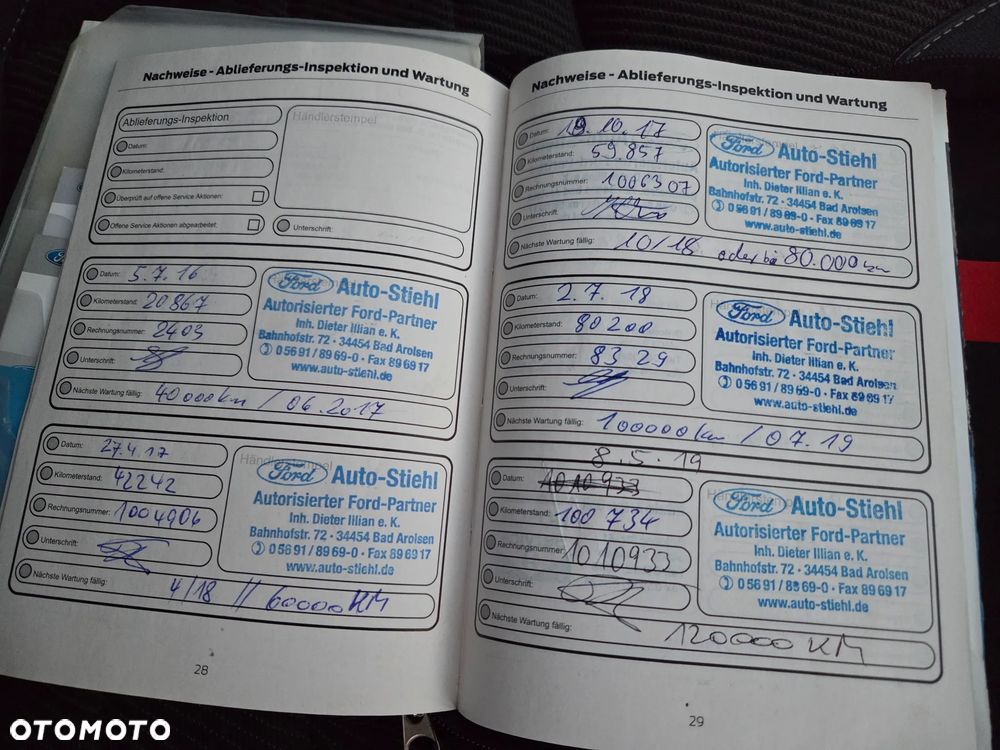 Nachweise - Ablieferungs-Inspektion und Wartung
Ablieferungs-Inspektion
Händlerstempel
Datum:
Kilometerstand:
Überprüft auf offene Service Aktionen:
Offene Service Aktionen abgearbeitet:
Unterschrift:
Datum: 5.7.16
Kilometerstand: 20867
Rechnungsnummer: 2403
Unterschrift:
Nächste Wartung fällig: 40000km / 06.2017
Ford Auto-Stiehl
Autorisierter Ford-Partner
Inh. Dieter Illian e. K.
Bahnhofstr. 72 · 34454 Bad Arolsen
0 56 91 / 89 69-0 · Fax 89 69 17
www.auto-stiehl.de
Datum: 27.4.17
Kilometerstand: 42242
Rechnungsnummer: 1004906
Unterschrift:
Nächste Wartung fällig: 4/18 // 60000 KM
Händlerstempel
Ford Auto-Stiehl
Autorisierter Ford-Partner
Inh. Dieter Illian e. K.
Bahnhofstr. 72 · 34454 Bad Arolsen
0 56 91 / 89 69-0 · Fax 89 69 17
www.auto-stiehl.de
28
Nachweise - Ablieferungs-Inspektion und Wartung
Datum: 19.10.17
Kilometerstand: 59.857
Rechnungsnummer: 1006307
Unterschrift:
Nächste Wartung fällig: 10/18 oder bei 80.000 km
Händlerstempel
Ford Auto-Stiehl
Autorisierter Ford-Partner
Inh. Dieter Illian e. K.
Bahnhofstr. 72 · 34454 Bad Arolsen
0 56 91 / 89 69-0 · Fax 89 69 17
www.auto-stiehl.de
Datum: 2.7.18
Kilometerstand: 80200
Rechnungsnummer: 8329
Unterschrift:
Nächste Wartung fällig: 100000 km / 07.19
Ford Auto-Stiehl
Autorisierter Ford-Partner
Inh. Dieter Illian e. K.
Bahnhofstr. 72 · 34454 Bad Arolsen
0 56 91 / 89 69-0 · Fax 89 69 17
www.auto-stiehl.de
8.5.19
Datum: 1010933
Kilometerstand: 100734
Rechnungsnummer: 1010933
Unterschrift:
Nächste Wartung fällig: 120000 KM
Ford Auto-Stiehl
Autorisierter Ford-Partner
Inh. Dieter Illian e. K.
Bahnhofstr. 72 · 34454 Bad Arolsen
0 56 91 / 89 69-0 · Fax 89 69 17
www.auto-stiehl.de
29
OTOMOTO